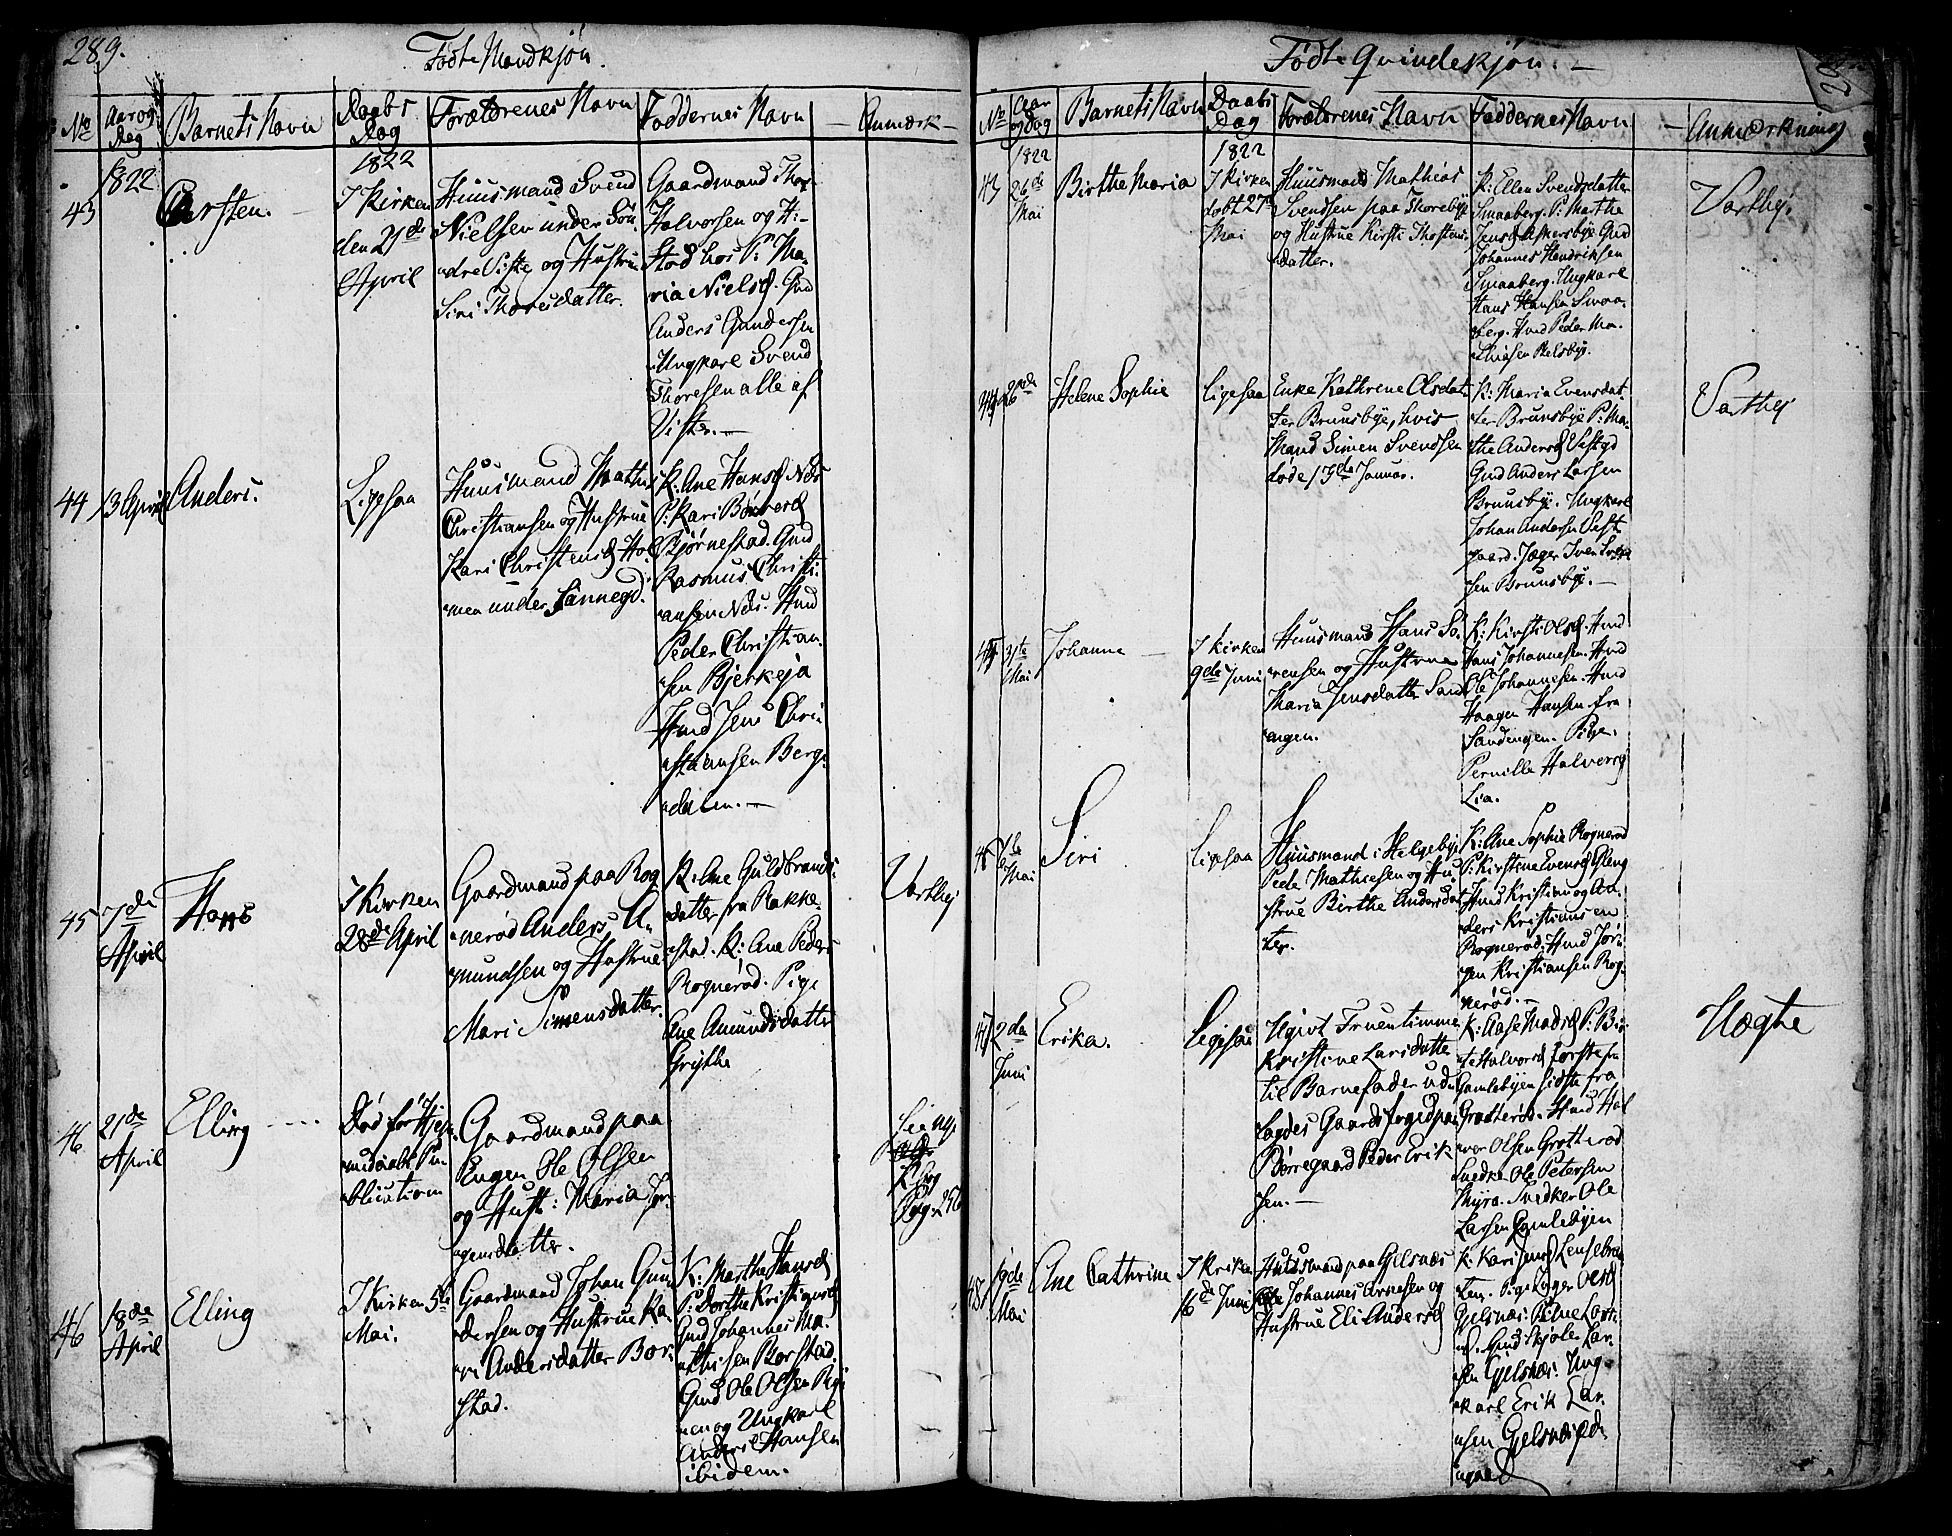 289.
Födte Mandkjön.
No
Aar og Dag
Barnets Navn
Daabs Dag
Forældrenes Navn
Faddernes Navn
Anmærk
1822
1822
43
Carsten.
I Kirken
den 21de
April
Huusmand Svend
Nielsen under Sön
dre Viste og Hustrue
Siri Thoresdatter.
Gaardmand Thor
Halvorsen og H:
stod hos P: Ma
ria Nielsd. Gmd
Anders Gundersen
Ungkarl Svend
Thoresen alle af
Viste.
44
13 April
Anders.
Ligesaa
Huusmand Mathis
Christiansen og Hustrue
Kari Christensd Hol
men under
K. Ane Hansd Næs
P: Kari
Björnestad. Gmd
Rasmus Christi
ansen Næs. Hmd
Peder Christian
sen Bjerkeja
Hmd Jens Chri
stiansen Berg
dalen.
45
7de
April
Hans
I Kirken
28de April
Gaardmand paa Rog
neröd Anders A
mundsen og Hustrue
Mari Simensdatter.
K: Ane Guldbrands
datter fra Rakke
stad. K: Ane Peders
Rogneröd. Pige
Ane Amundsdatter
Varthej
46
21de
April
Elling
Död för Hjem
medaabs Pu
blication
Gaardmand paa
Engen Ole Olsen
og Hust: Maria Jör
gensdatter.
Pag. 256
46
18de
April
Elling
I Kirken 5te
Mai.
Gaardmand Johan Gun
dersen og Hustrue Ka
ri Andersdatter Bor
stad.
K: Marthe Hansd
P: Dorthe Kristiansd
Gmd Johannes Ma
thisen Borstad
Gmd Ole Olsen
en og Ungkarl
Anders Hansen
ibidem.
Födte Qvindekjön.
No
Aar og Dag
Barnets Navn
Daabs Dag
Forældrenes Navn
Faddernes Navn
Anmærkning
1822
1822
43
26de
Mai
Birthe Maria
I Kirken
döbt 27
Mai
Huusmand Mathias
Svendsen paa Thorebye
og Hustrue Kirsti Thostens
datter.
K: Ellen Svendsdatter
Smaaberg. P: Marthe
Jensd Askersbye Gmd
Johannes Hendriksen
Smaaberg. Ungkarl
Hans Hansen Smaa
berg. Hmd Peder Ma
thiasen Kelsbye.
Varthej.
44
26de
Helene Sophie
Ligesaa
Enke Kathrene Olsdat
ter Brunsbye, hvis
Mand Simen Svendsen
döde 13de Januar.
K: Maria Evensdat
ter Brunsbye P: Ma
the Andersd Vestgd
Gmd Anders Larsen
Brunsbye. Ungkarl
Johan Andersen Vest
gaard. Jæger Iver
sen Brunsbye.
Varthej
45
31te
Mai
Johanne
I Kirken
9de Juni
Huusmand Hans Sö
rensen og Hustrue
Maria Jensdatter Sand
engen.
K: Kirsti Olsd. Hmd
Hans Johannesen. Hmd
Ole Johannesen. Hmd
Haagen Hansen fra
Sandengen. Pige
Pernille Halversd
Lia.
46
Mai
Siri
Ligesaa
Huusmand i Helgebye
Peder Mathiesen og Hu
strue Birthe Andersdat
ter.
K: Ane Sophie Rogneröd
P: Kirstine Evensd Eseng
Hmd Kristian og An
ders Kristiansen
Rogneröd. Hmd Jör
gen Kristiansen Rog
neröd.
47
2den
Juni
Erika.
Ligesaa
Ugivt Fruentimme
Kristine Larsdatte
til Barnefader ud
lagdes Gaardsfoged paa
Börregaard Peder Erik
sen.
K: Aase Madsd P: Bir
te Halvorsd förste fra
Gamlebyen sidste fra
Gratteröd. Hmd Hal
vor Olsen Grotteröd
Snedker Ole Petersen
Myra. Snedker Ole
Larsen Gamlebyen
Hægthe
48
19de
Mai
Ane Cathrine
I Kirken
16de Juni
Huusmand paa Gjelsnæs
Johannes Arnesen og
Hustrue Eli Andersd
K: Kari Jensd
Pige Inger Olsd
Gjelsnæs. P: Ane Lars
d. Gmd Skjöle Lar
sen Gjelsnæs. Ung
karl Erik Lar
sen Gjelsnæs